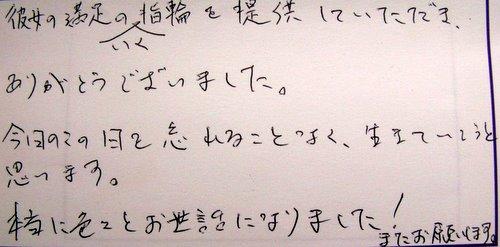 彼女の満足のいく指輪を提供していただき、
ありがとうございました。
今日のこの日を忘れることなく、生きていこうと
思います。
本当に色々とお世話になりました!
またお願いします。